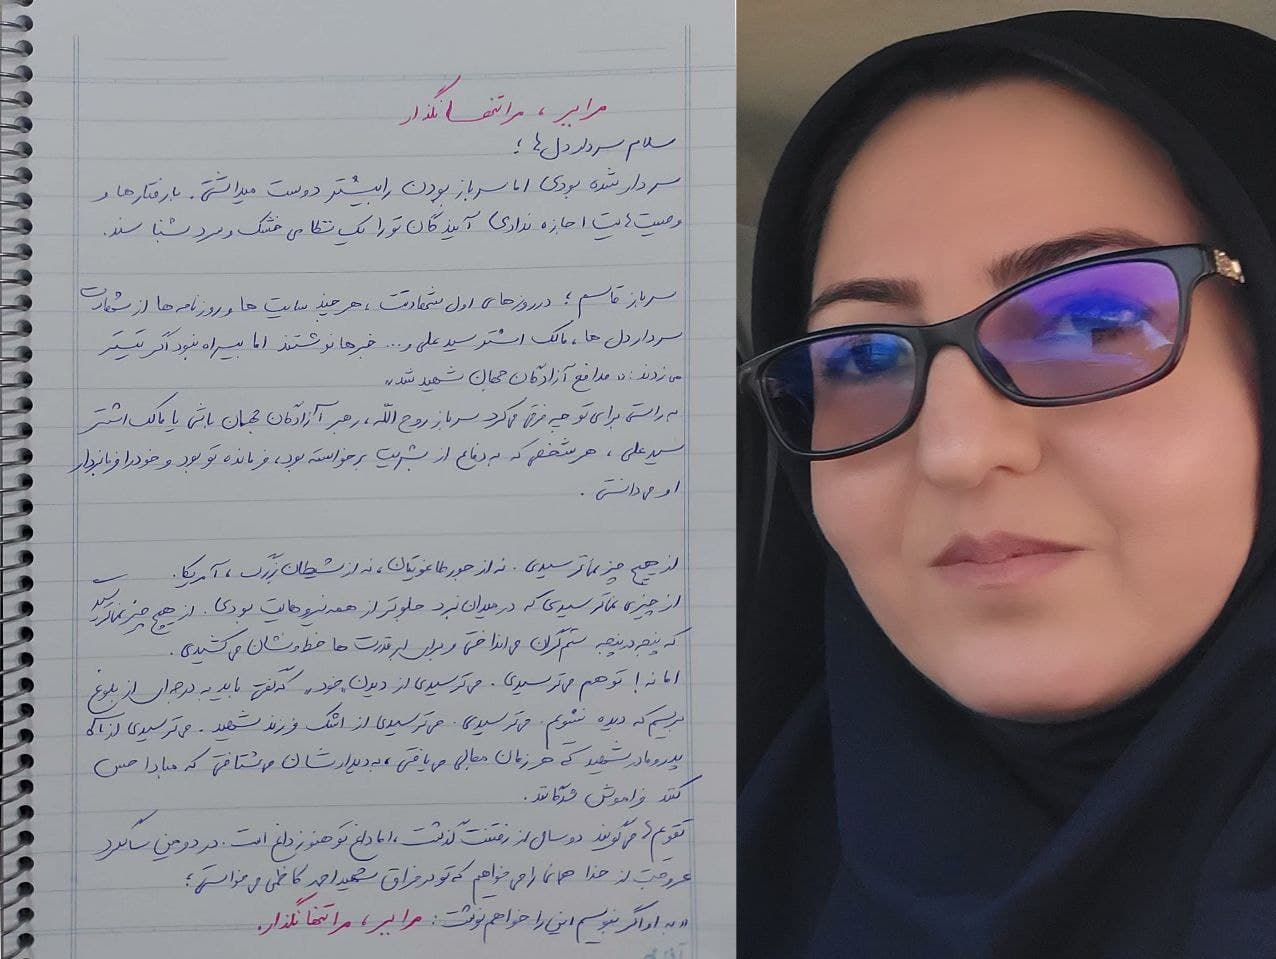 مرا ببر ، مرا تنها نگذار
سلام سردار دل ها ؛
سردار شده بودی اما سرباز بودن را بیشتر دوست میداشتی . با رفتارها و
وصیت هایت اجازه ندادی آیندگان تو را یک نظامی خشک و سرد شناسند .
سرباز قاسم ؛ در روزهای اول شهادتت ، هر چند سایت ها و روزنامه ها از شهادت
سردار دل ها ، مالک اشتر سید علی و ... خبرها نوشتند اما بیراه نبود اگر تیتر
می زدند : « مدافع آزادگان جهان شهید شد »
به راستی برای تو چه فرقی می کرد سرباز روح الله ، رهبر آزادگان جهان باشی یا مالک اشتر
سید علی ، هر شخصی که به دفاع از بشریت برخواسته بود ، فرمانده تو بود و خود را فرمانبردار
او می دانستی .
از هیچ چیز نمی‌ترسیدی . نه از جور طاغوتیان ، نه از شیطان بزرگ ، آمریکا .
از چیزی نمی‌ترسیدی که در میدان نبرد جلوتر از همه نیروهایت بودی . از هیچ چیز نمی‌ترسیدی
که پنجه در پنجه ستمگران می انداختی و برای ابر قدرت ها خط و نشان می کشیدی .
اما نه ! تو هم می ترسیدی . می ترسیدی از دیدن « خود » که گفتی باید به درجه ای از بلوغ
برسیم که دیده نشویم . می ترسیدی . می ترسیدی از اشک فرزند شهید . می ترسیدی از آه
پدر و مادر شهید که هر زمان مجالی می یافتی ، به دیدارشان می شتافتی که مبادا حس
کنند فراموش شدگانند .
تقویم ها می گویند دو سال از رفتنت گذشت ، اما داغ تو هنوز داغ است . در دومین سالگرد
عروجت از خدا همانی را می خواهم که تو در فراق شهید احمد کاظمی می خواستی ؛
« به او اگر بنویسم این را خواهم نوشت : مرا ببر ، مرا تنها نگذار .